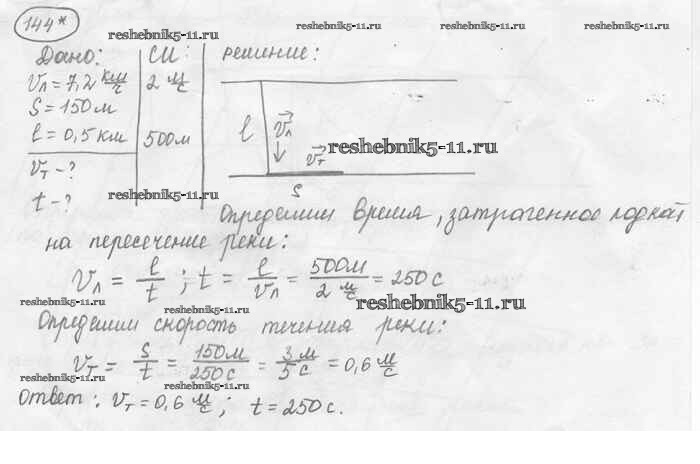 144*
reshebnik5-11.ru reshebnik5-11.ru reshebnik5-11.ru
Дано: СИ: решение:
vл = 7,2 км/ч 2 м/с
S = 150 м
l = 0,5 км 500м
vт - ?
t - ?
l vл vт
reshebnik5-11.ru
reshebnik5-11.ru
S
Определим время, затраченное лодкой
на пересечение реки:
vл = l/t ; t = l/vл = 500м / 2 м/с = 250 с
reshebnik5-11.ru reshebnik5-11.ru reshebnik5-11.ru
Определим скорость течения реки:
vт = S/t = 150м/250с = 3м/5с = 0,6 м/с
reshebnik5-11.ru reshebnik5-11.ru
Ответ: vт = 0,6 м/с ; t = 250 с.